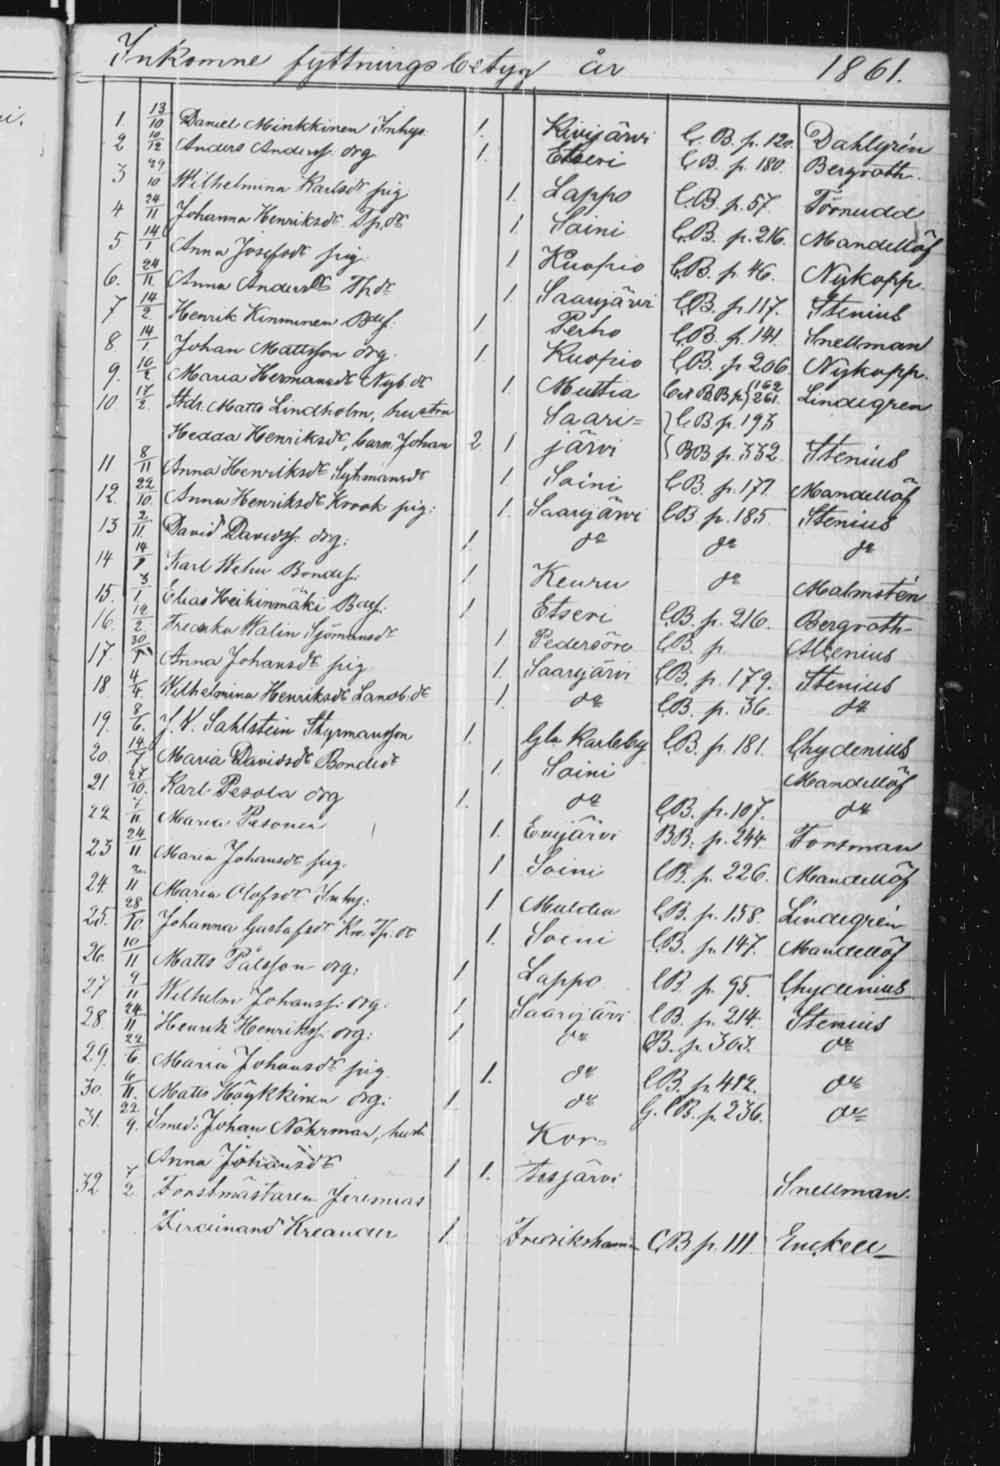 Inkomne flyttningsbetyg år 1861.
1. 13/10 Daniel Minkkinen Inhys. 1. Kivijärvi C. B. p. 120. Dahlgrén
2 10/12 Anders Andersf. drg 1. Etseri C B. p. 180. Bergroth.
3 29/10 Wilhelmina Karlsdr pig 1. Lappo C.B. p. 57. Törnudd
4 24/11 Johanna Henriksdr Tp.dr 1 Soini C.B. p. 216. Mandellöf
5 14/1 Anna Josefsdr pig 1 Kuopio C.B. p. 46. Nykopp.
6. 24/11 Anna Andersdr Tp.dr 1. Saarijärvi C.B. p. 117. Stenius
7 14/2 Henrik Kinnunen Bdsf. 1 Perho C.B. p. 141. Snellman
8. 14/1. Johan Mattsson drg. 1. Kuopio C.B. p 206. Nykopp.
9. 10/2 Maria Hermansdr Nyb.dr 1. Multia C och BB p 162 261. Lindegren
10 17/2 Matts Lindholm, hustru Saari= C B p. 193
Hedda Henriksdr, barn Johan 2 1 järvi BB p. 332. Stenius
11 8/11 Anna Henriksdr 1 Soini C B. p. 177. Mandellöf
12. 22/10. Anna Henriksdr Krook pig: 1. Saarijärvi C B p. 185. Stenius
13 2/11 David Davidsf. drg: 1. dr dr dr
14 14/ Karl Bondes. 1 Keuru dr Malmstén
15. 3/1 Elias Heikinmäki Bdsf. 1 Etseri C.B. p. 216. Bergroth
16. 12/2 Fredrika Walin Sjömansdr 1 Pedersöre C.B. p.
17 30/ Anna Johansdr pig 1 Saarijärvi C.B. p. 179. Stenius
18 4/4. Wilhelmina Henriksdr Landb.dr 1. dr C.B. p. 36. dr
19. 8/6. J. W. Sahlstein Styrmansson 1. Gla Karleby C.B. p. 181. Chydenius
20. 14/7 Maria Davidsdr Bondedr 1. Soini Mandellöf
21 27/10. Karl Pesola drg 1. dr C.B. p. 107. dr
22 7/11 Maria Pesonen 1. Evijärvi BB. p. 244. Forsman
23 24/11 Maria Johansdr pig. 1 Soini C.B. p. 226. Mandellöf
24. 2/11 Maria Olofsdr Inhy: 1 Multia C.B. p. 158. Lindegrén
25. 28/10. Johanna Gustafsdr Kr. Tp. dr 1. Soini C.B. p. 147. Mandellöf
26. 10/11 Matts Pålsson drg: 1 Lappo C.B. p. 95. Chydenius
27 9/11 Wilhelm Johansf. drg. 1 Saarijärvi C.B. p. 214. Stenius
28. 24/11 Henrik Henriksf. drg: 1 dr C.B. p. 303. dr
29. 22/6. Maria Johansdr pig. 1. dr C.B. p. 412. dr
30. 6/11. Matts Höykkinen drg: 1. dr G. C.B. p. 236. dr
31. 22/9. Smed: Johan Nohrman, hust. Kor=
Anna Johansdr 1 1. tesjärvi Snellman.
32 7/2 Forstmästaren Jeremias
Ferdinand Kreander 1. Fredrikshamn C B p. 111. Enckell